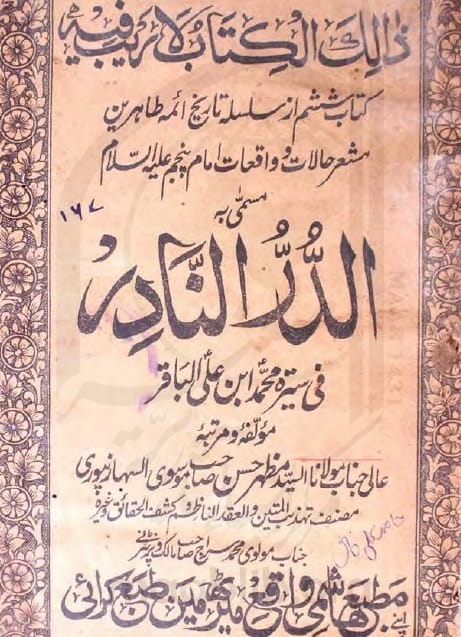 ذالك الكتاب لا ريب فيه
کتاب ششم از سلسلہ تاریخ ائمہ طاہرین
مشعر حالات و واقعات امام پنجم علیہ السلام
مسمّٰی بہ
١٦٧
الدُّرُّ النَّادِر
فی سیرۃ محمدؑ ابن علیؑ الباقر
مؤلفہ و مرتبہ
عالی جناب مولانا السید مظہر حسن صاحب موسوی السہارنپوری
مصنف تہذیب المتین والعقد الناظم و کشف الحقائق وغیرہ
جناب مولوی محمد سراج صاحب مالک پرنٹر نے
اپنے مطبع ہاشمی واقع میرٹھ مین طبع کرائی